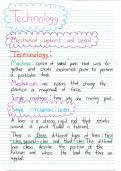 Technology
Mechanical systems and control
Technology:
Machine: consist of several parts that work to-
gether and create mechanical power to perform
a particular task.
Mechanisms: are systems that change the
direction or magnitude of force.
Simple machine: have only one moving part.
Simple mechanisms: Levers
A lever is a strong rigid rod that rotates
around a pivot called a fulcrum.
There is three different types of levers: first
class, second-class and third-class. The different
lever classes describe the position of the
fulcrum and where the load the their are
applied.